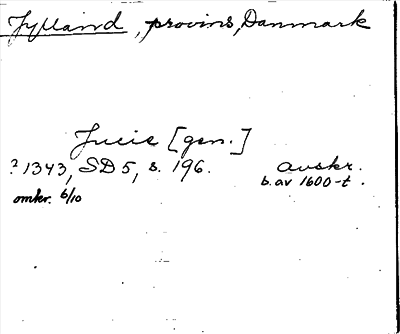 Jylland, provins, Danmark
Jucie [gen.]
? 1343, SD 5, s. 196. avskr.
omkr. 6/10 b. av 1600-t.